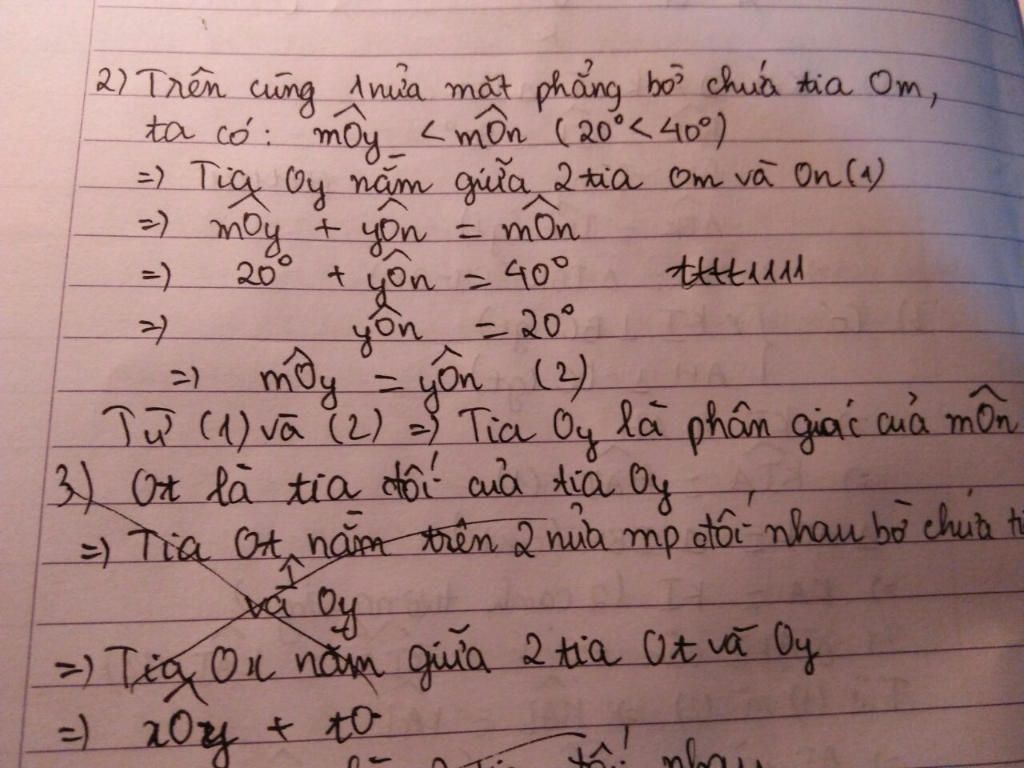 2) Trên cùng 1 nửa mặt phẳng bờ chứa tia Om,
ta có: mÔy < mÔn (20° < 40°)
=) Tia Oy nằm giữa 2 tia Om và On (1)
=) mÔy + yÔn = mÔn
=) 20° + yÔn = 40°
=) yÔn = 20°
=) mÔy = yÔn (2)
Từ (1) và (2) =) Tia Oy là phân giác của mÔn
3) Ot là tia đối của tia Oy
=) Tia Ot nằm trên 2 nửa mp đối nhau bờ chứa
và Oy
=) Tia Ox nằm giữa 2 tia Ot và Oy
=) xÔy + tO
đối nhau